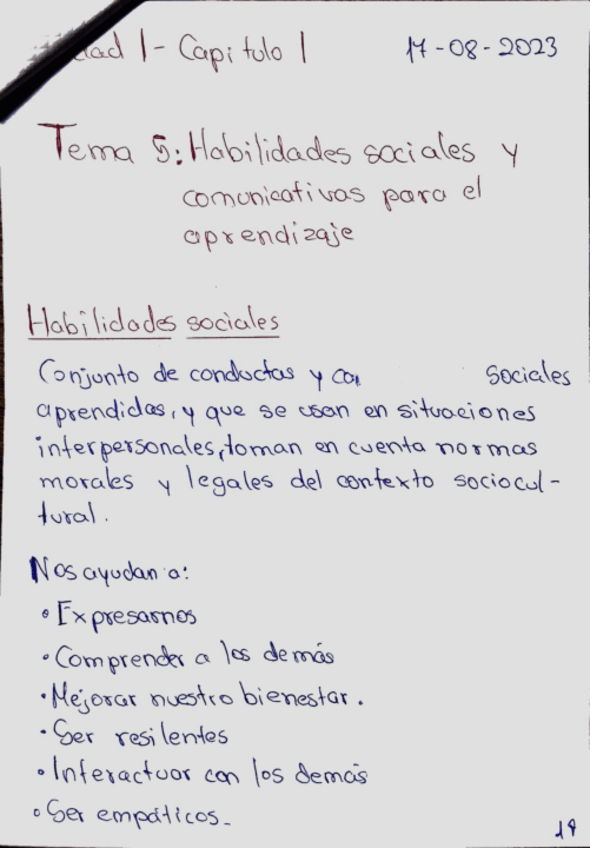 dad 1 - Capitulo 1
17-08-2023
Tema 5: Habilidades sociales y
comunicativas para el
aprendizaje
Habilidades sociales
Conjunto de conductas y sociales
aprendidas, y que se usan en situaciones
interpersonales, toman en cuenta normas
morales y legales del contexto sociocul-
tural.
Nos ayudan a:
• Expresarnos
• Comprender a los demás
• Mejorar nuestro bienestar.
• Ser resilentes
• Interactuar con los demás
• Ser empáticos.